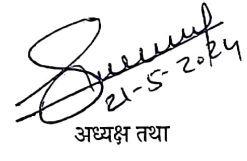 21-5-2024
अध्यक्ष तथा